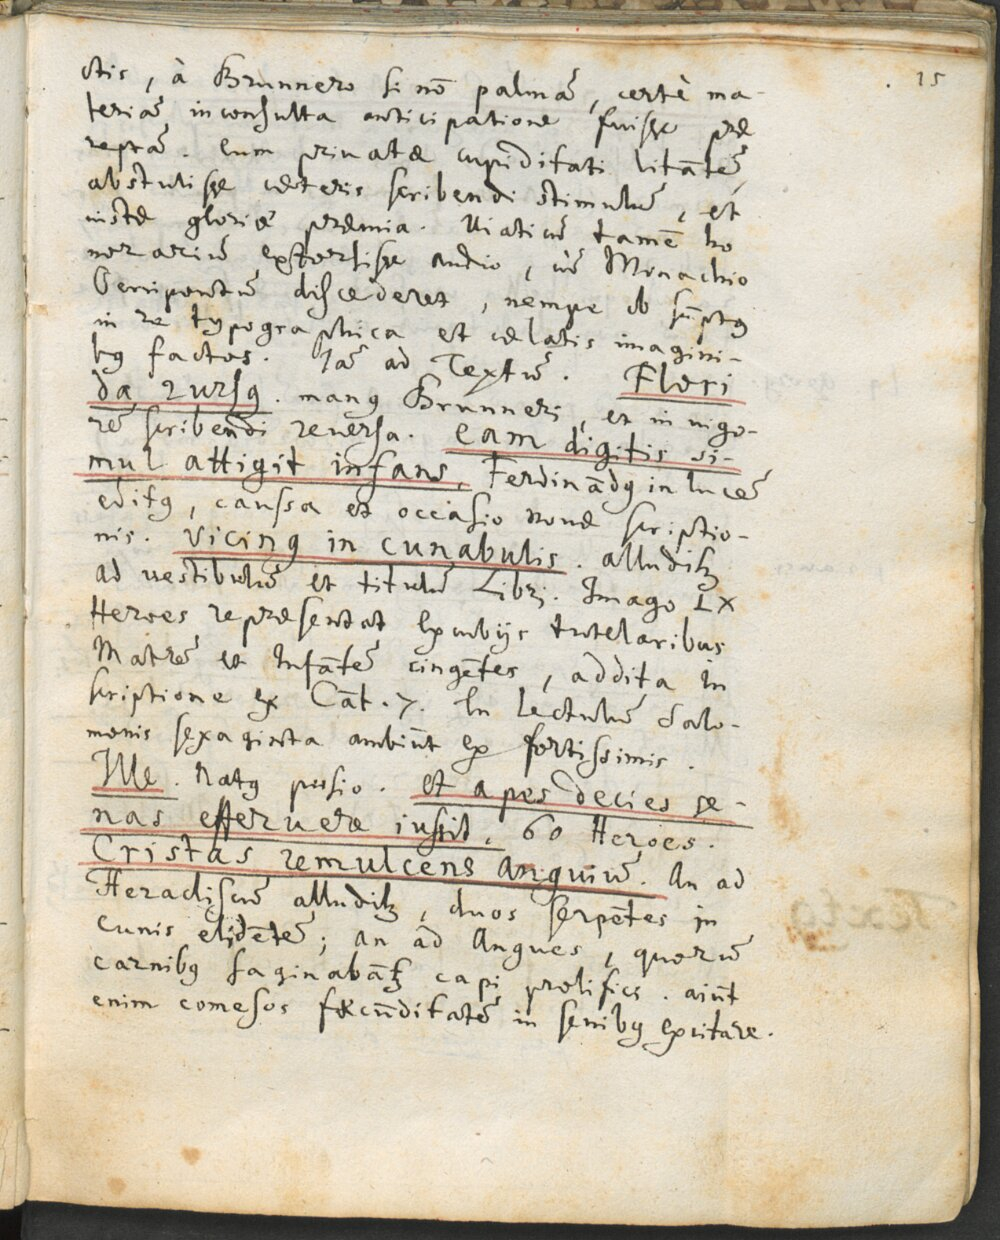 15
ctis, à Brunnero si nō palmā, certè ma-
teriā inconsulta anticipatione fuisse præ
reptā. Eum priuatæ cupiditati litātē,
abstulisse cæteris scribendi stimulū, et
iustæ gloriæ præmia. Uiaticū tamē ho
norariū extorsisse audio, cū Monachio
Oenipontū discederet, nempe ob sūptꝰ
in re typographica et cælatis imagini-
bꝰ factos. Iā ad Textū. Flori
da rursꝰ. manꝰ Brunneri, et in uigo-
rē scribendi reuersa. Eam digitis si-
mul attigit infans, Ferdinādꝰ in lucē
editꝰ, caussa et occasio nouæ scriptio-
nis. Vicinꝰ in cunabulis. alludit
ad uestibulū et titulū Libri. Imago LX
Heroes repræsentat excubijs tutelaribus
Matrē et Infātē cingētes, addita in
scriptione ex Cāt. 7. En Lectulū Salo-
monis sexaginta ambiūt ex fortissimis.
Ille. Natꝰ pusio. et apes decies se-
nas efferuere iussit, 60 Heroes.
Cristas remulcens Anguiū. An ad
Heracliscū alludit, duos serpētes in
cunis elidētē; an ad Angues, quorū
carnibꝰ saginabāt capi prolifici. aiūt
enim comesos fœcūditatē in senibꝰ excitare.